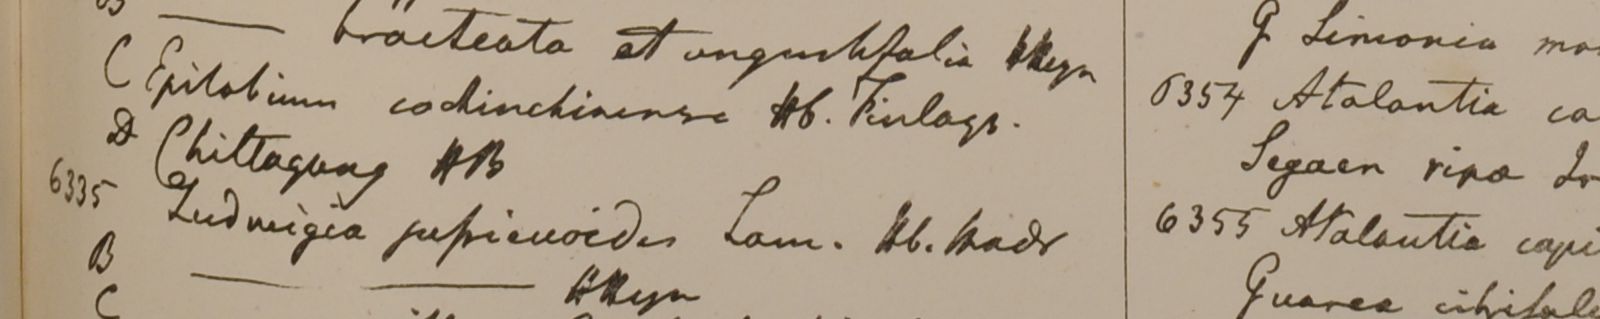 B —— bracteata et angustifolia HHeyn
C Epilobium cochinchinense Hb. Finlays.
D Chittagong HB
6335 Ludwigia jussieuoides Lam. Hb. Madr
B —— —— HHeyn
C
G Limonia
6354 Atalantia
Segaen ripa
6355 Atalantia
Guarea